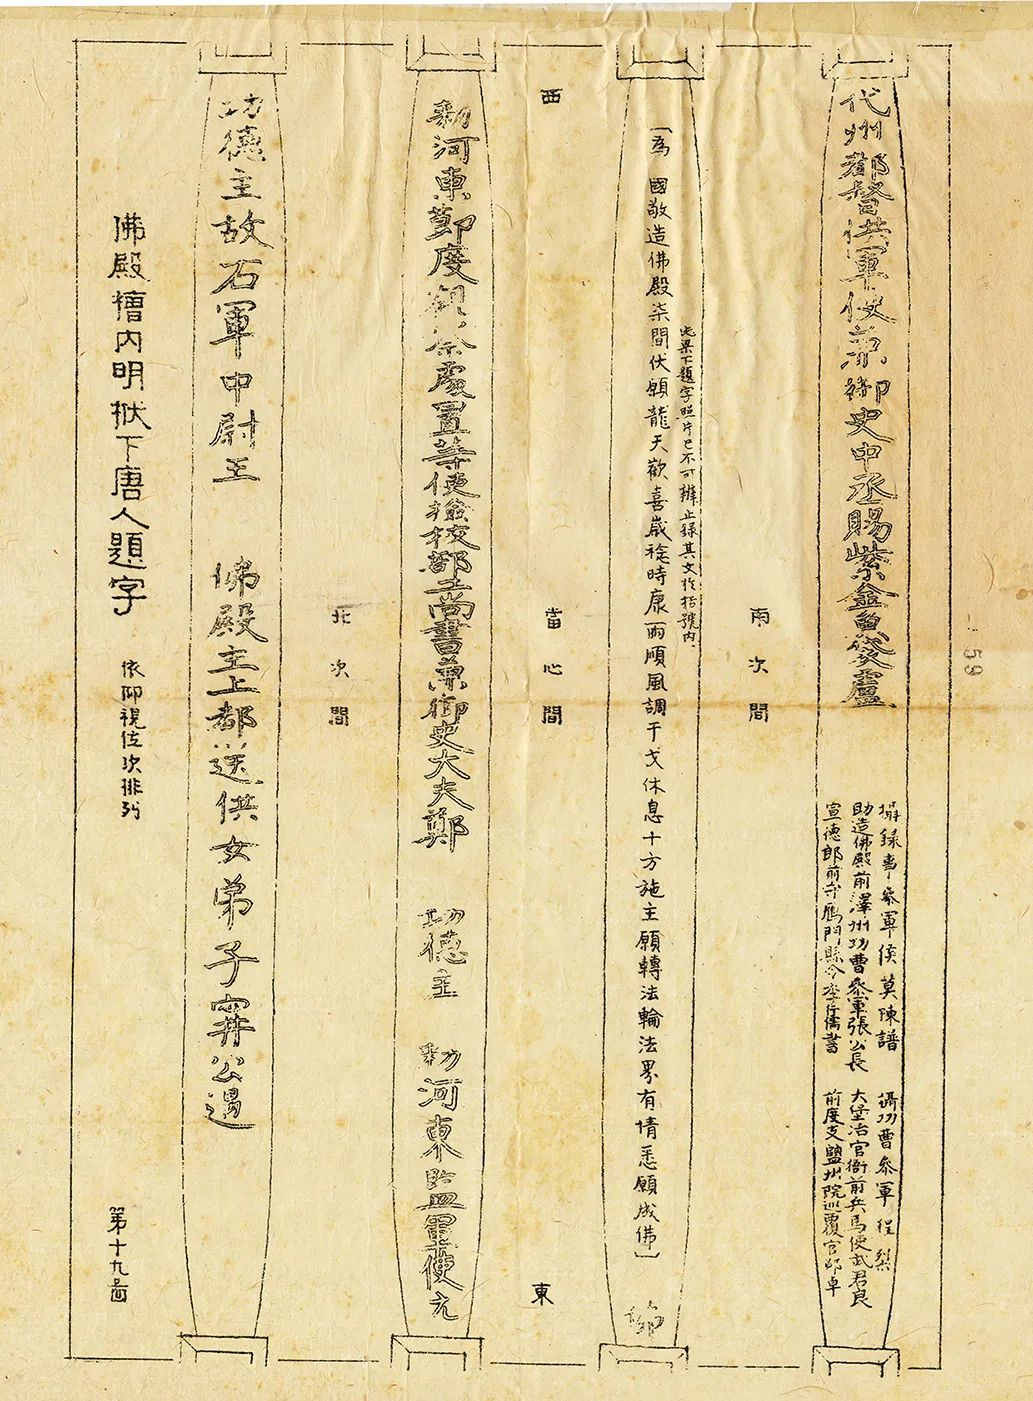 代州都督供軍使兼御史中丞賜紫金魚袋盧
攝錄事參軍侯莫陳譜
攝功曹參軍程
助造佛殿前澤州功曹參軍張公長
大堡冶官衙前兵馬使武君良
宣德郎前守鴈門縣令李行儒書
前度支鹽州院巡覆官邵卓
59
南次間
此梁下題字照片已不可辨止錄其文於括號內
〔為 國敬造佛殿柒間伏願龍天歡喜歲稔時康雨順風調干戈休息十方施主願轉法輪法界有情悉願成佛〕
西
當心間
東
勑河東節度觀察處置等使檢校部工尚書兼御史大夫鄭
功德主
勑河東監軍使元
北次間
功德主故右軍中尉王
佛殿主上都送供女弟子甯公遇
佛殿槽內明栿下唐人題字
依仰視位次排列
第十九圖